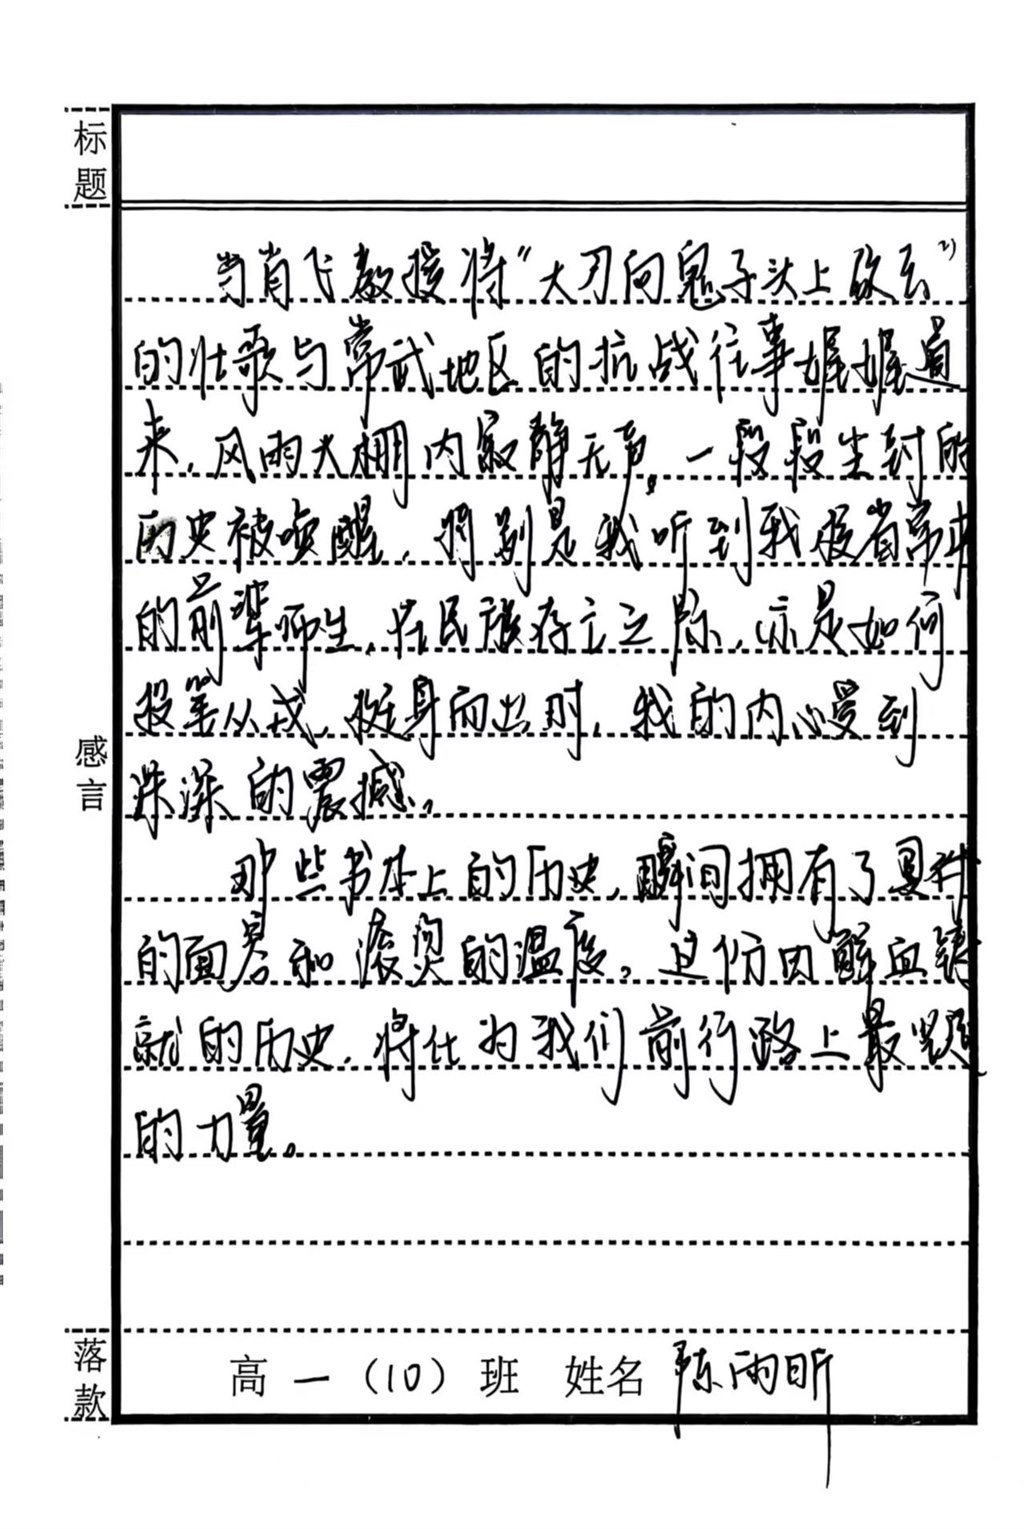 标题
当肖飞教授将“大刀向鬼子头上砍去”
的壮歌与常武地区的抗战往事娓娓道
来，风雨大棚内寂静无声。一段段尘封的
历史被唤醒，特别是我听到我校省常中
的前辈师生，在民族存亡之际，亦是如何
投笔从戎，挺身而出时，我的内心受到
深深的震撼。
感言
那些书本上的历史，瞬间拥有了具体
的面容和滚烫的温度。这份由鲜血铸
就的历史，将化为我们前行路上最坚定
的力量。
落款
高一（10）班 姓名 陈雨昕